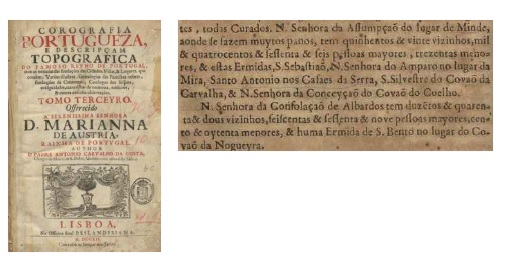 COROGRAFIA
PORTUGUEZA,
E DESCRIPÇAM
TOPOGRAFICA
DO FAMOSO REYNO DE PORTUGAL,
TOMO TERCEYRO.
Offerecido
A SERENISSIMA SENHORA
D. MARIANNA
DE AUSTRIA,
RAINHA DE PORTUGAL.
AUTHOR
O PADRE ANTONIO CARVALHO DA COSTA,
LISBOA,
Na Officina Real DESLANDESIANA.
tes, todas Curados. N. Senhora da Assumpçaõ do lugar de Minde,
aonde se fazem muytos panos, tem quinhentos & vinte vizinhos, mil
& quatrocentos & sessenta & seis pessoas mayores, trezentas meno-
res, & estas Ermidas, S. Sebastiaõ, N. Senhora do Amparo no lugar da
Mira, Santo Antonio nos Casaes da Serra, S. Silvestre do Covaõ da
Carvalha, & N. Senhora da Conceyçaõ do Covaõ do Coelho.
N. Senhora da Consolaçaõ de Albardos tem duzẽtos & quaren-
ta & dous vizinhos, seiscentas & sessenta & nove pessoas mayores, cen-
to & oytenta menores, & huma Ermida de S. Bento no lugar do Co-
vaõ da Nogueyra.